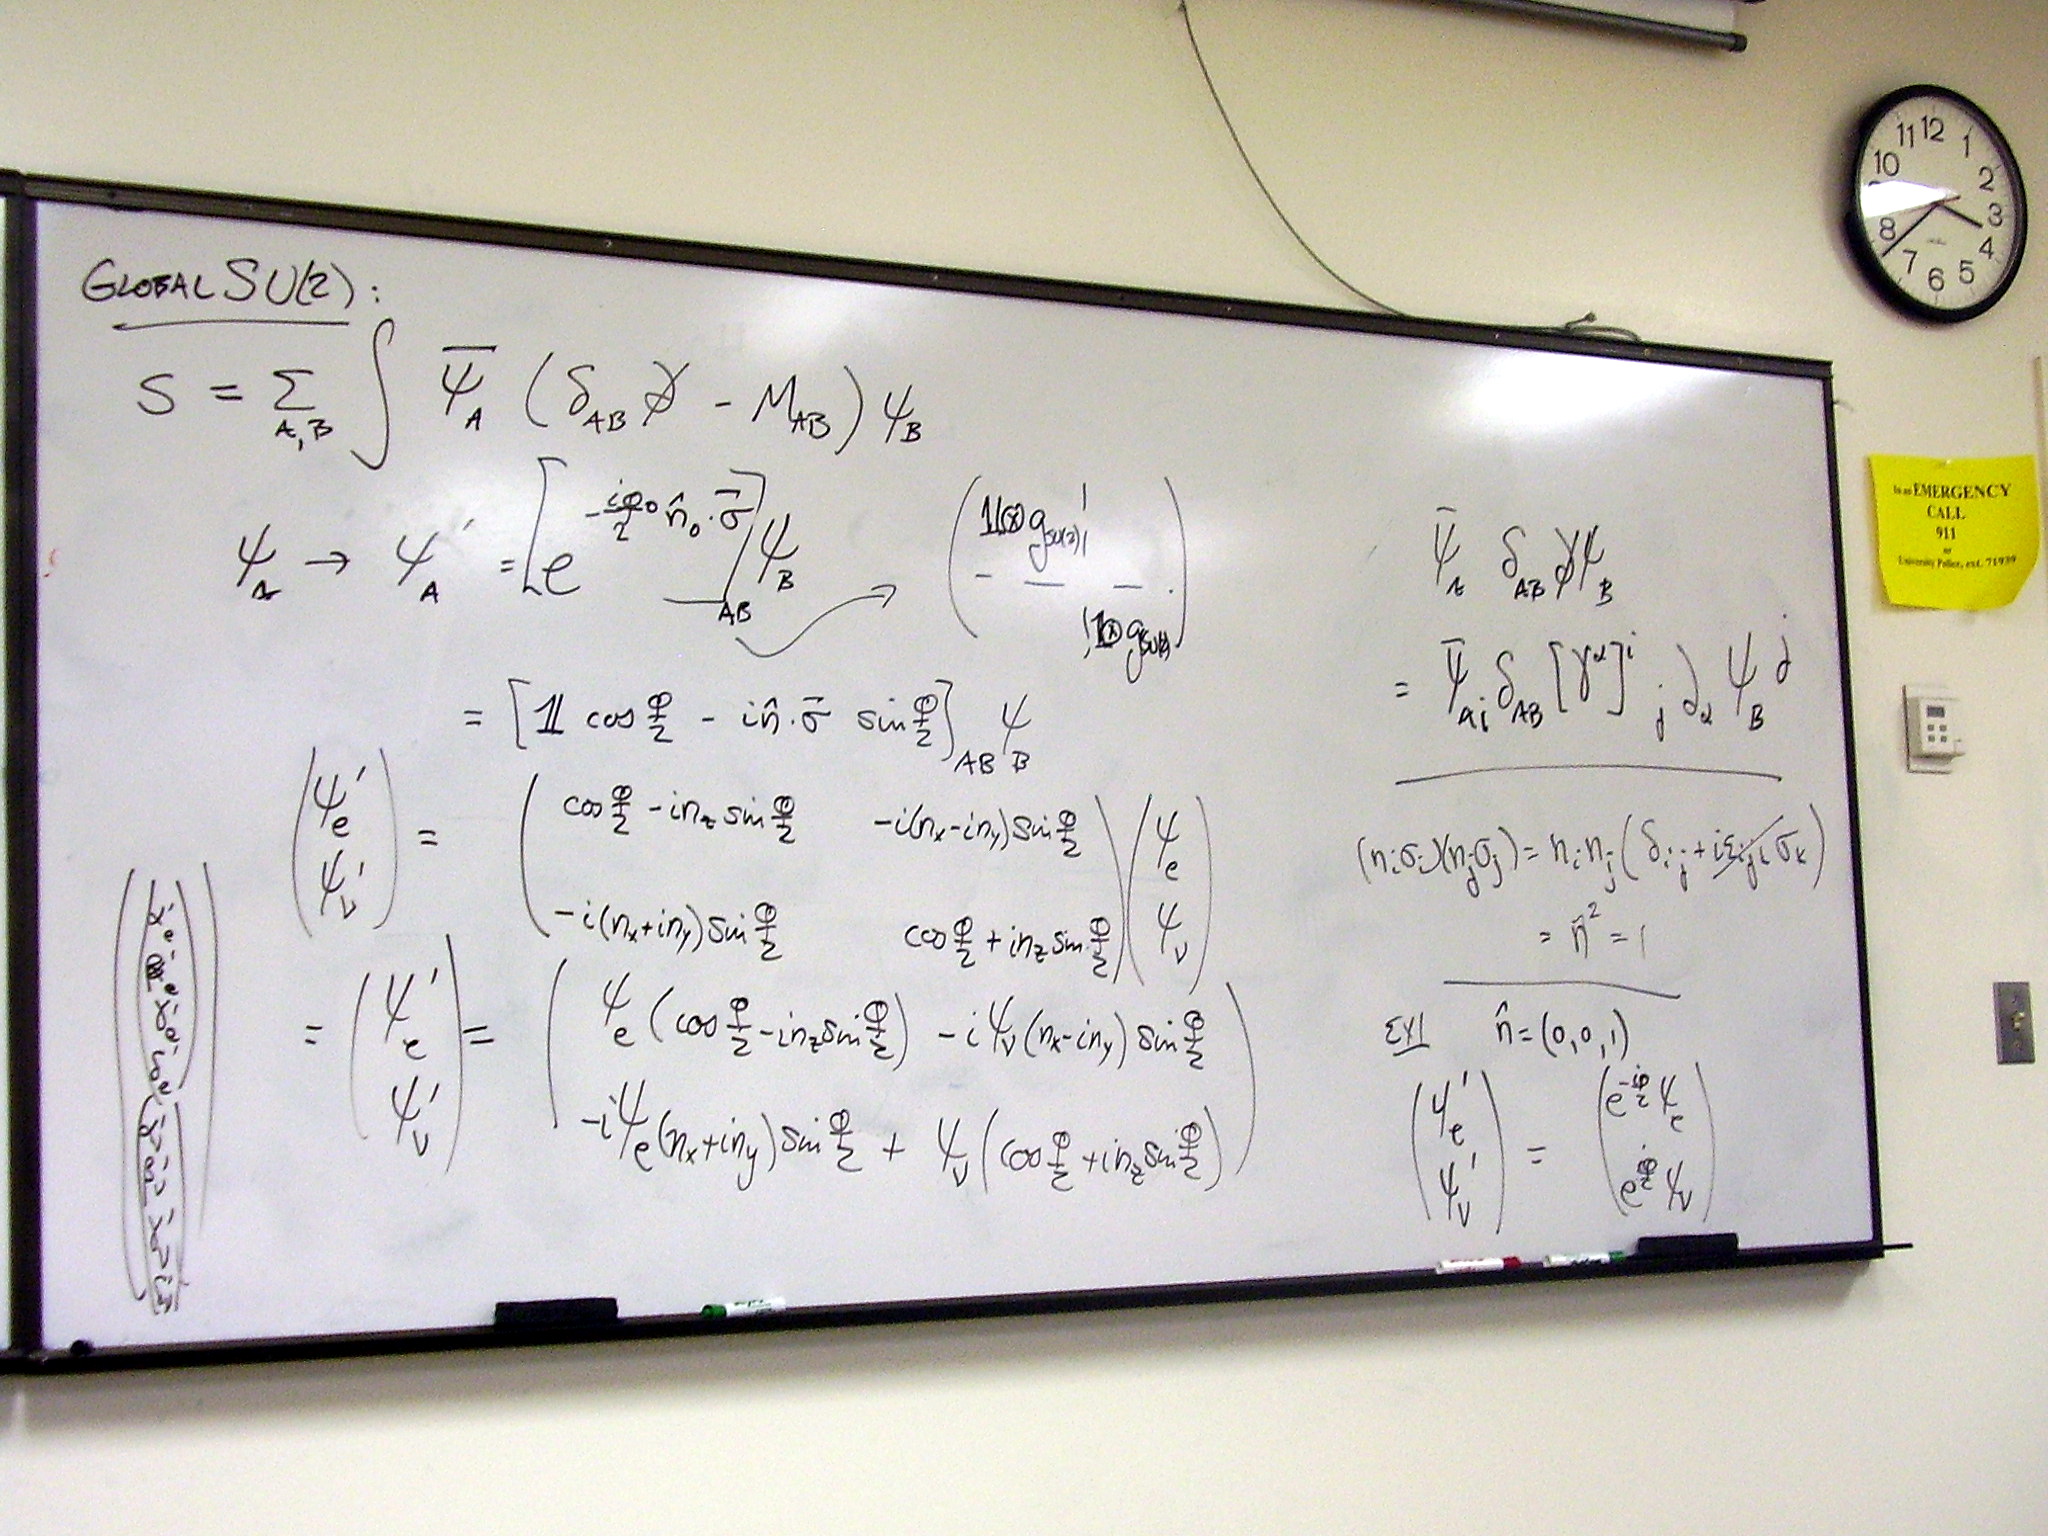 GLOBAL SU(2):
S = Σ_{A,B} ∫ ψ̄_A (δ_AB ∂̸ - M_AB) ψ_B
ψ_A → ψ_A' = [e^{-iφ_0/2 n̂_0·σ⃗}]_AB ψ_B
(𝟙⊗g_SU(2) ¦ — — — ¦ 𝟙⊗g_SU(2))
= [𝟙 cos φ/2 - i n̂·σ⃗ sin φ/2]_AB ψ_B
(ψ_e' ψ_ν') = (cos φ/2 - i n_z sin φ/2   -i(n_x - i n_y) sin φ/2
-i(n_x + i n_y) sin φ/2   cos φ/2 + i n_z sin φ/2) (ψ_e ψ_ν)
= (ψ_e' ψ_ν') = (ψ_e (cos φ/2 - i n_z sin φ/2) - i ψ_ν (n_x - i n_y) sin φ/2
-i ψ_e (n_x + i n_y) sin φ/2 + ψ_ν (cos φ/2 + i n_z sin φ/2))
ψ̄_A δ_AB ∂̸ ψ_B
= ψ̄_{Ai} δ_AB [γ^α]^i_j ∂_α ψ_B^j
(n_i σ_i)(n_j σ_j) = n_i n_j (δ_ij + i ε_ijk σ_k)
= n̂² = 1
EX1 n̂ = (0,0,1)
(ψ_e' ψ_ν') = (e^{-iφ/2} ψ_e
e^{iφ/2} ψ_ν)
12
1
2
3
4
5
6
7
8
10
11
In an EMERGENCY
CALL
911
or
University Police, ext. 71939